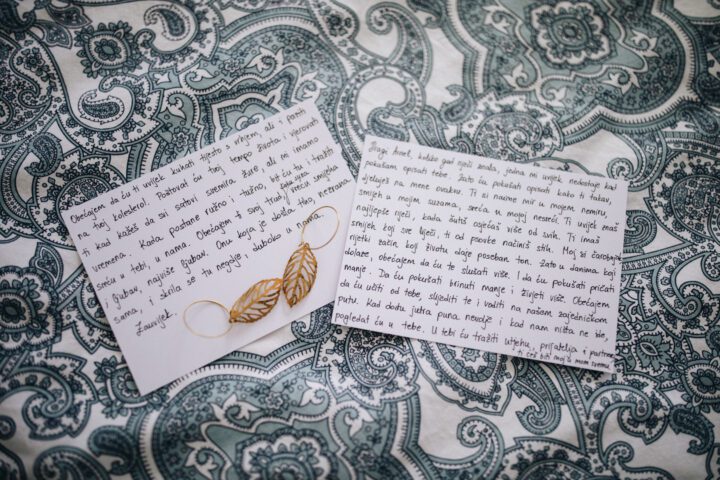 Obećajem da ću ti uvijek kuhati tijesto s vrhjem, ali i paziti
na tvoj kolesterol. Poštovat ću tvoj tempo života i vjerovati
ti kad kažeš da svi satovi svemira žure, ali mi imamo
vremena. Kada postane ružno i tužno, bit ću tu i tražiti
sreću u tebi, u nama. Obećajem i svoj trud, sreću smijeha
i ljubav, najviše ljubav. Onu koja je došla tiho, nezvana
sama, i skrila se tu negdje i duboko u nama.
Zauvijek.
Dragi Anel, koliko god riječi znala, jedna mi uvijek nedostaje kad
pokušam opisati tebe. Zato ću pokušati opisati kako ti takav,
djeluješ na mene ovakvu. Ti si naime mir u mojem nemiru,
smijeh u mojim suzama, sreća u mojoj nesreći. Ti uvijek znaš
najljepše riječi, kada šutiš osjećaš više od svih. Ti imaš
smijeh koji sve liječi, ti od psovke načiniš stih. Moj si čarobnjak
rijetki začin koji životu daje poseban ton. Zato u danima koji
dolaze, obećajem da ću te slušati više. I da ću pokušati pričati
manje. Da ću pokušati brinuti manje i živjeti više. Obećajem
da ću učiti od tebe, slijediti te i voditi na našem zajedničkom
putu. Kad dođu jutra puna nevolje i kad nam ništa ne ide,
pogledat ću u tebe. U tebi ću tražiti utjehu, prijatelja i partnera,
ti ćeš biti moj u mom svemu.